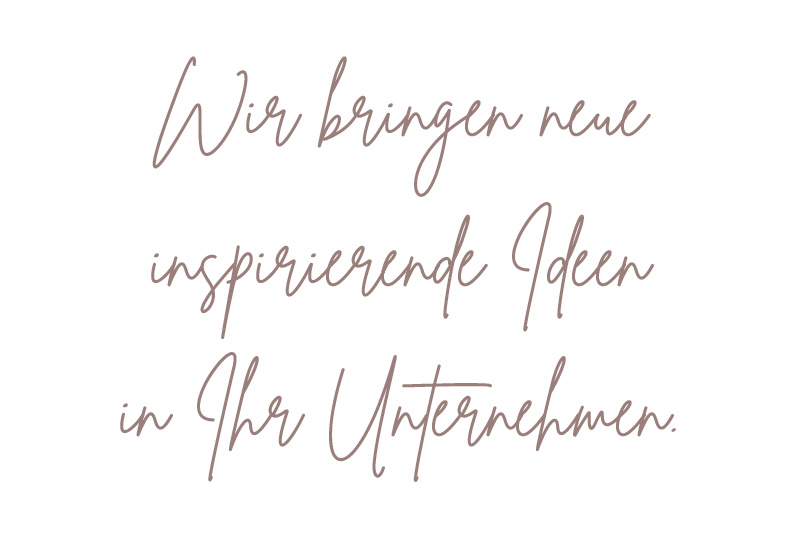 Wir bringen neue
inspirierende Ideen
in Ihr Unternehmen.